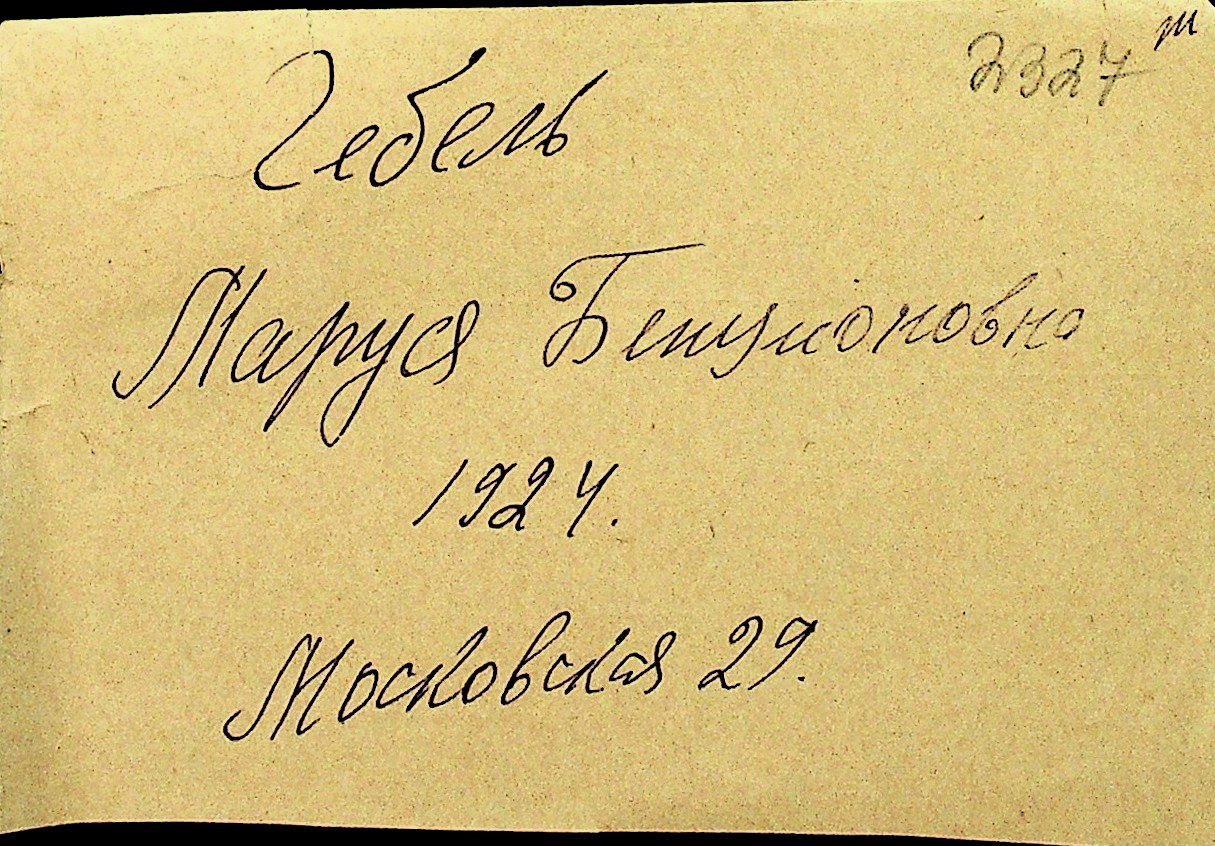 2327 т
Гебель
Маруся Бенционовна
1924.
Московская 29.